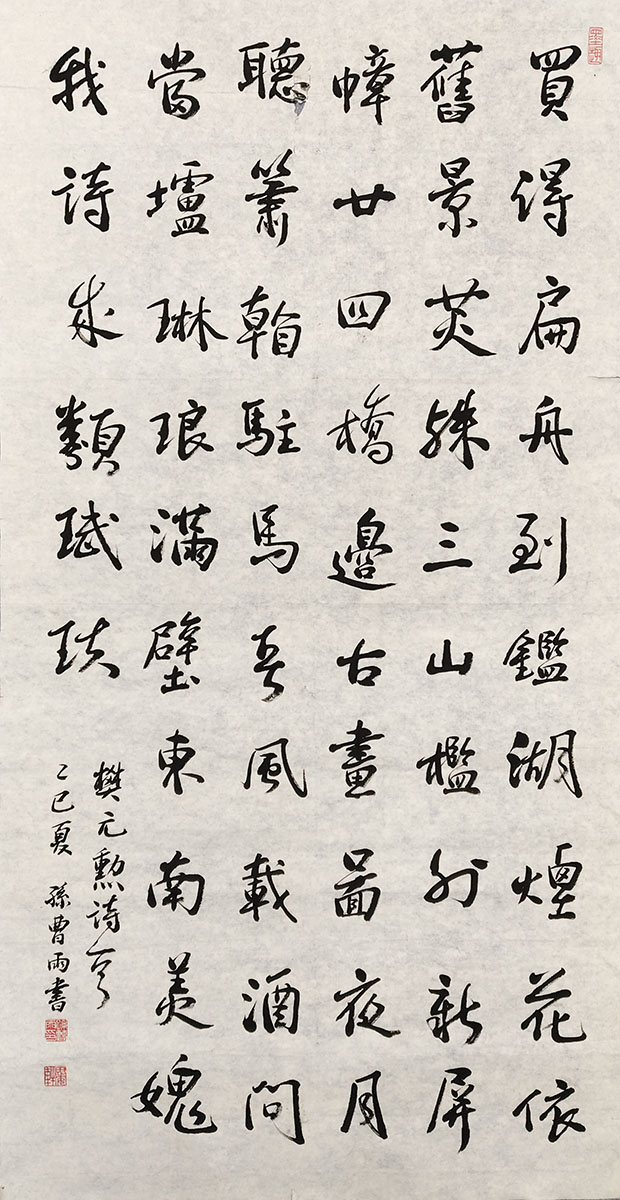 買得扁舟到鑑湖煙花依
舊景殊三山檻外新屏
幛廿四橋邊古畫圖夜月
聽簫駐馬春風載酒問
當壚琳琅滿壁東南美愧
我詩成類珷玞
樊元勳詩一首
乙巳夏 孫曹雨書